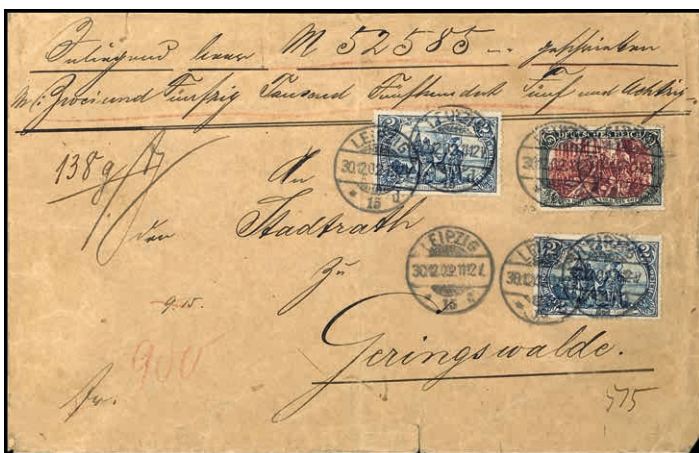 Inliegend baar M 52585 — geschrieben
M: Zwei und Fünfzig Tausend Fünfhundert Fünf und Achtzig
138 g
An
den Stadtrath
zu
Geringswalde.
900
Fr.
575
LEIPZIG
30.12.02.11-12V.
* 15 d
LEIPZIG
LEIPZIG
30.12.02.11-12V.
* 15 d
DEUTSCHES REICH
5
2
2